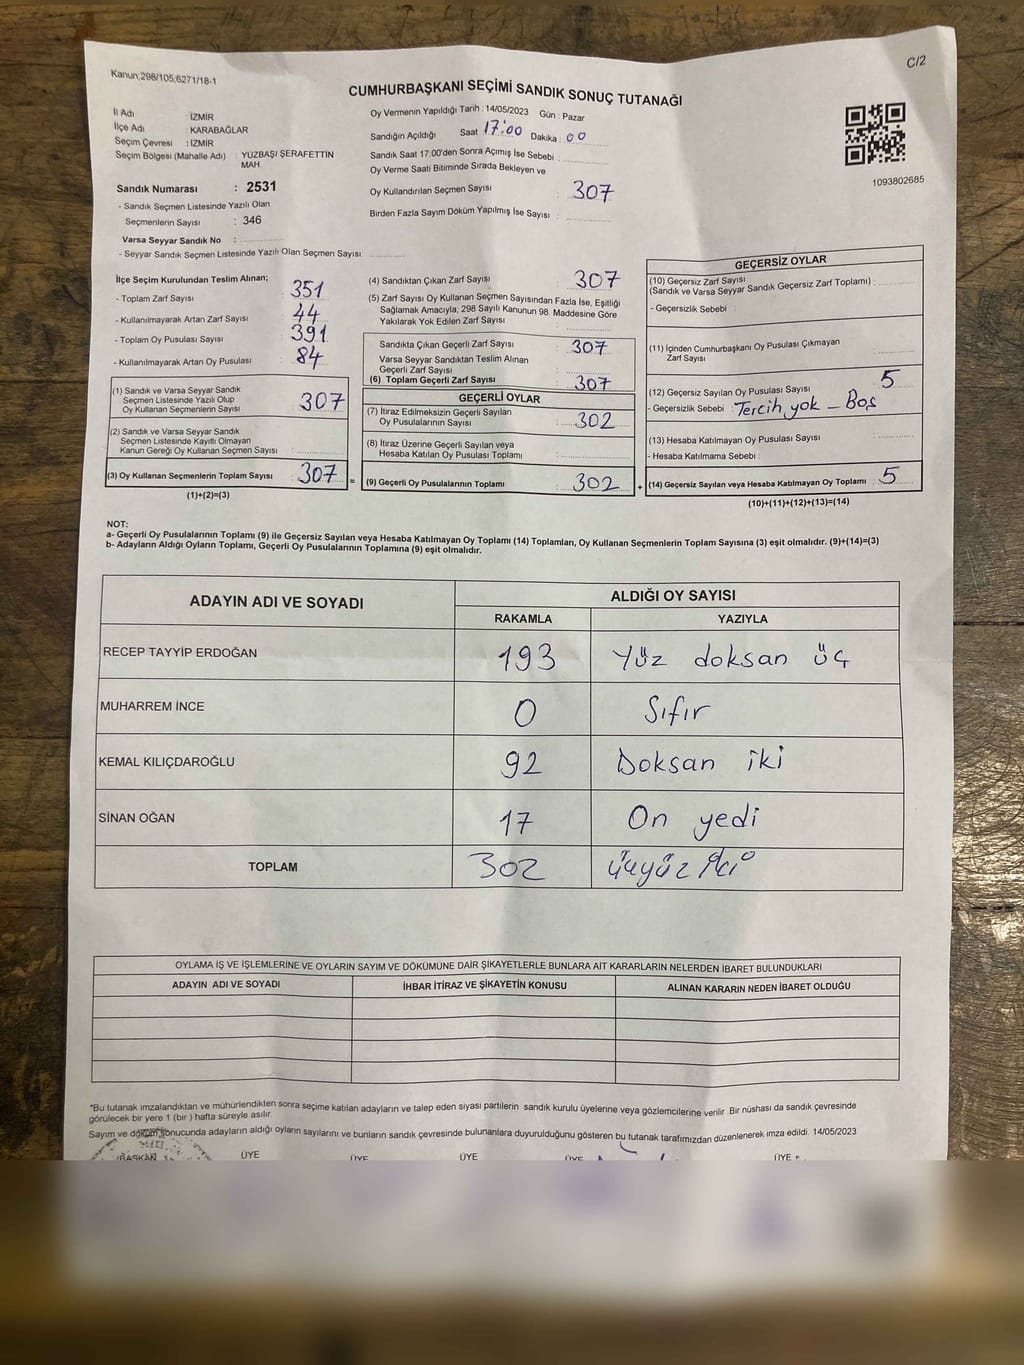 Kanun,298/105,6271/18-1
C/2
CUMHURBAŞKANI SEÇİMİ SANDIK SONUÇ TUTANAĞI
İl Adı : İZMİR
İlçe Adı : KARABAĞLAR
Seçim Çevresi : İZMİR
Seçim Bölgesi (Mahalle Adı) : YÜZBAŞI ŞERAFETTİN
MAH.
Sandık Numarası : 2531
- Sandık Seçmen Listesinde Yazılı Olan
Seçmenlerin Sayısı : 346
Varsa Seyyar Sandık No :
- Seyyar Sandık Seçmen Listesinde Yazılı Olan Seçmen Sayısı:
Oy Vermenin Yapıldığı Tarih : 14/05/2023 Gün : Pazar
Sandığın Açıldığı Saat 17:00 Dakika : 00
Sandık Saat 17:00'den Sonra Açımış İse Sebebi :
Oy Verme Saati Bitiminde Sırada Bekleyen ve
Oy Kullandırılan Seçmen Sayısı : 307
Birden Fazla Sayım Döküm Yapılmış İse Sayısı :
1093802685
İlçe Seçim Kurulundan Teslim Alınan;
- Toplam Zarf Sayısı : 351
- Kullanılmayarak Artan Zarf Sayısı : 44
- Toplam Oy Pusulası Sayısı : 391
- Kullanılmayarak Artan Oy Pusulası : 84
(1) Sandık ve Varsa Seyyar Sandık
Seçmen Listesinde Yazılı Olup
Oy Kullanan Seçmenlerin Sayısı : 307
(2) Sandık ve Varsa Seyyar Sandık
Seçmen Listesinde Kayıtlı Olmayan
Kanun Gereği Oy Kullanan Seçmen Sayısı :
(3) Oy Kullanan Seçmenlerin Toplam Sayısı : 307
(1)+(2)=(3)
=
(4) Sandıktan Çıkan Zarf Sayısı : 307
(5) Zarf Sayısı Oy Kullanan Seçmen Sayısından Fazla İse, Eşitliği
Sağlamak Amacıyla; 298 Sayılı Kanunun 98. Maddesine Göre
Yakılarak Yok Edilen Zarf Sayısı :
Sandıkta Çıkan Geçerli Zarf Sayısı : 307
Varsa Seyyar Sandıktan Teslim Alınan
Geçerli Zarf Sayısı :
(6) Toplam Geçerli Zarf Sayısı : 307
GEÇERLİ OYLAR
(7) İtiraz Edilmeksizin Geçerli Sayılan
Oy Pusulalarının Sayısı : 302
(8) İtiraz Üzerine Geçerli Sayılan veya
Hesaba Katılan Oy Pusulası Toplamı :
(9) Geçerli Oy Pusulalarının Toplamı : 302
+
GEÇERSİZ OYLAR
(10) Geçersiz Zarf Sayısı
(Sandık ve Varsa Seyyar Sandık Geçersiz Zarf Toplamı) :
- Geçersizlik Sebebi :
(11) İçinden Cumhurbaşkanı Oy Pusulası Çıkmayan
Zarf Sayısı :
(12) Geçersiz Sayılan Oy Pusulası Sayısı : 5
- Geçersizlik Sebebi : Tercih yok - Boş
(13) Hesaba Katılmayan Oy Pusulası Sayısı :
- Hesaba Katılmama Sebebi :
(14) Geçersiz Sayılan veya Hesaba Katılmayan Oy Toplamı : 5
(10)+(11)+(12)+(13)=(14)
NOT:
a- Geçerli Oy Pusulalarının Toplamı (9) ile Geçersiz Sayılan veya Hesaba Katılmayan Oy Toplamı (14) Toplamları, Oy Kullanan Seçmenlerin Toplam Sayısına (3) eşit olmalıdır. (9)+(14)=(3)
b- Adayların Aldığı Oyların Toplamı, Geçerli Oy Pusulalarının Toplamına (9) eşit olmalıdır.
ADAYIN ADI VE SOYADI ALDIĞI OY SAYISI
RAKAMLA YAZIYLA
RECEP TAYYİP ERDOĞAN 193 Yüz doksan üç
MUHARREM İNCE 0 Sıfır
KEMAL KILIÇDAROĞLU 92 Doksan iki
SİNAN OĞAN 17 On yedi
TOPLAM 302 üçyüz iki
OYLAMA İŞ VE İŞLEMLERİNE VE OYLARIN SAYIM VE DÖKÜMÜNE DAİR ŞİKAYETLERLE BUNLARA AİT KARARLARIN NELERDEN İBARET BULUNDUKLARI
ADAYIN ADI VE SOYADI İHBAR İTİRAZ VE ŞİKAYETİN KONUSU ALINAN KARARIN NEDEN İBARET OLDUĞU
*Bu tutanak imzalandıktan ve mühürlendikten sonra seçime katılan adayların ve talep eden siyasi partilerin sandık kurulu üyelerine veya gözlemcilerine verilir. Bir nüshası da sandık çevresinde
görülecek bir yere 1 (bir ) hafta süreyle asılır.
Sayım ve döküm sonucunda adayların aldığı oyların sayılarını ve bunların sandık çevresinde bulunanlara duyurulduğunu gösteren bu tutanak tarafımızdan düzenlenerek imza edildi. 14/05/2023
BAŞKAN ÜYE ÜYE ÜYE ÜYE ÜYE